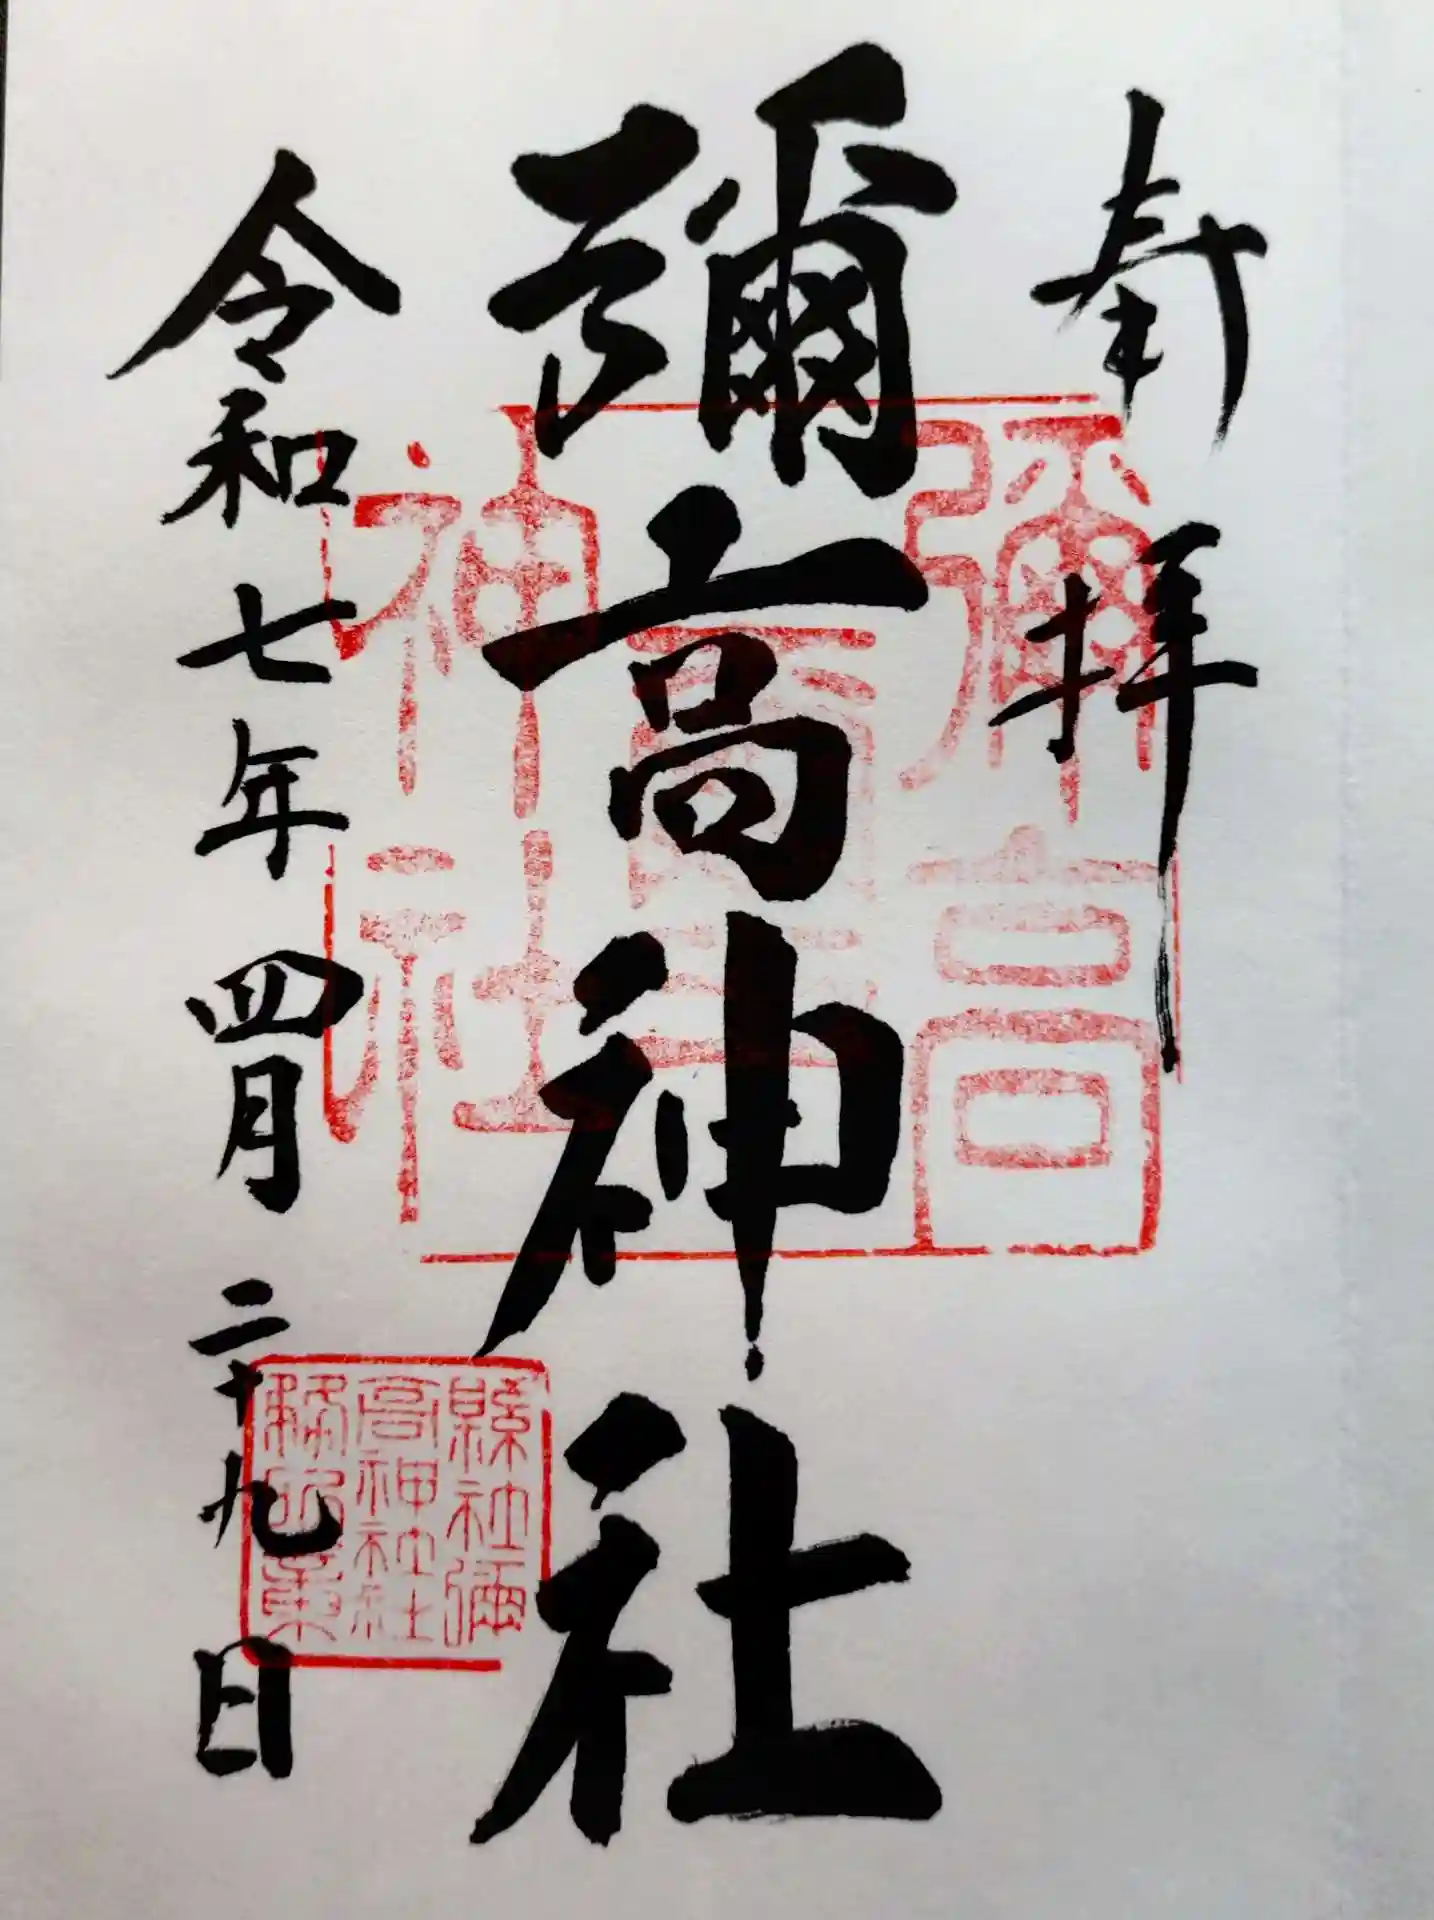 奉拝
彌高神社
令和七年四月二十九日
彌高
神社
縣社彌
高神社社
務所章